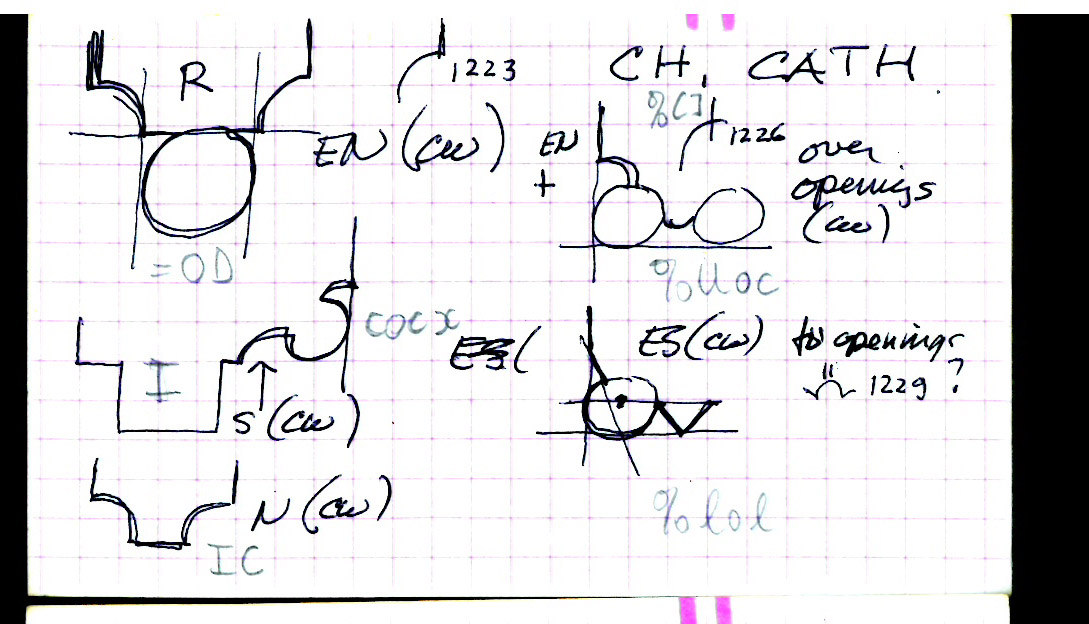 R
1223
CH, CATH
%CJ
EN (cw)
EN
+
1226
over
openings
(cw)
= OD
%UOC
I
cocx
ES(
ES(cw) to openings
1229?
S (cw)
N (cw)
%lol
IC